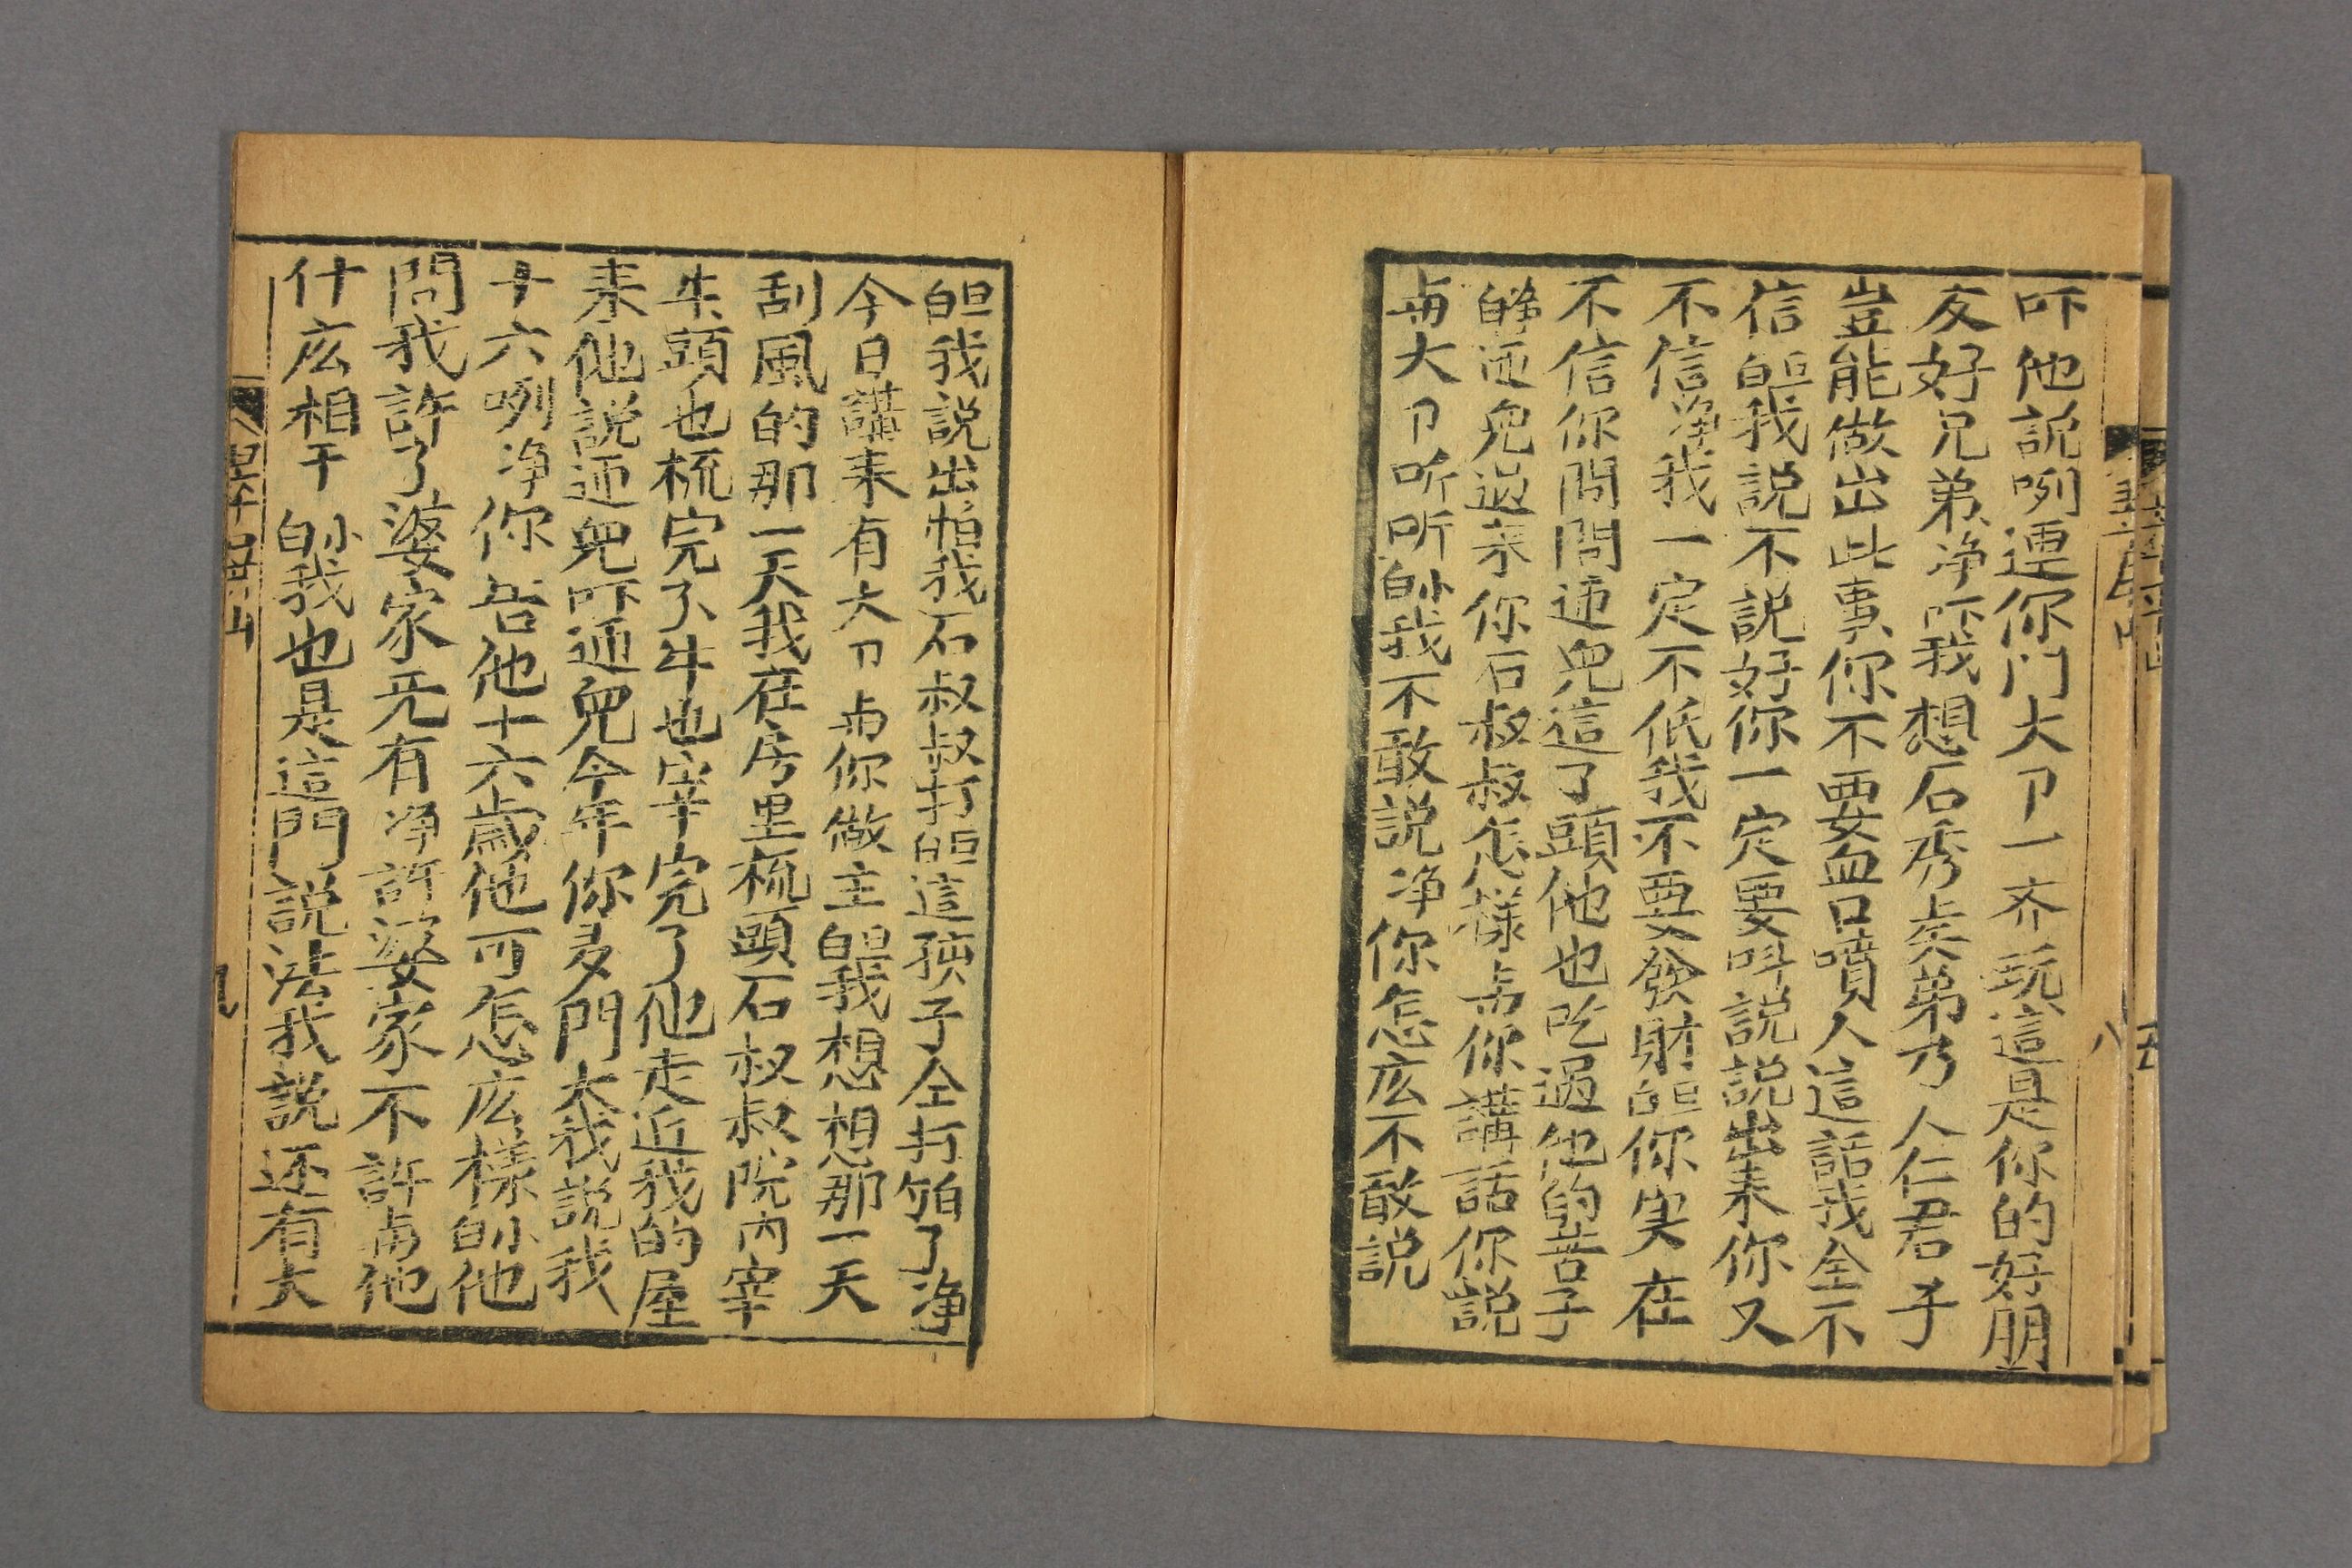 吓他説咧連你门大卩一齐玩這是你的好朋
友好兄弟净吓我想石秀矣弟乃人仁君子
豈能做出此事你不要血口噴人這話我全不
信白旦我説不説好你一定要呌説説出耒你又
不信净我一定不低我不要發財白旦你実在
不信你問問迊兒這了頭他也吃過他的苦子
白净迊兒过来你石叔叔怎樣卨你講話你説
卨大卩听听白小我不敢説净你怎庅不敢説
白旦我説出怕我石叔叔打白旦這孩子全打怕了净
今日講耒有大卩卨你做主白旦我想想那一天
刮風的那一天我在房里梳頭石叔叔院内宰
牛頭也梳完了牛也宰完了他走近我的屋
耒他説迊兒吓迊兒今年你多門大我説我
十六咧净你告他十六歲他可怎庅樣白小他
問我許了婆家无有净許婆家不許卨他
什庅相干白小我也是這門説法我説还有大
八